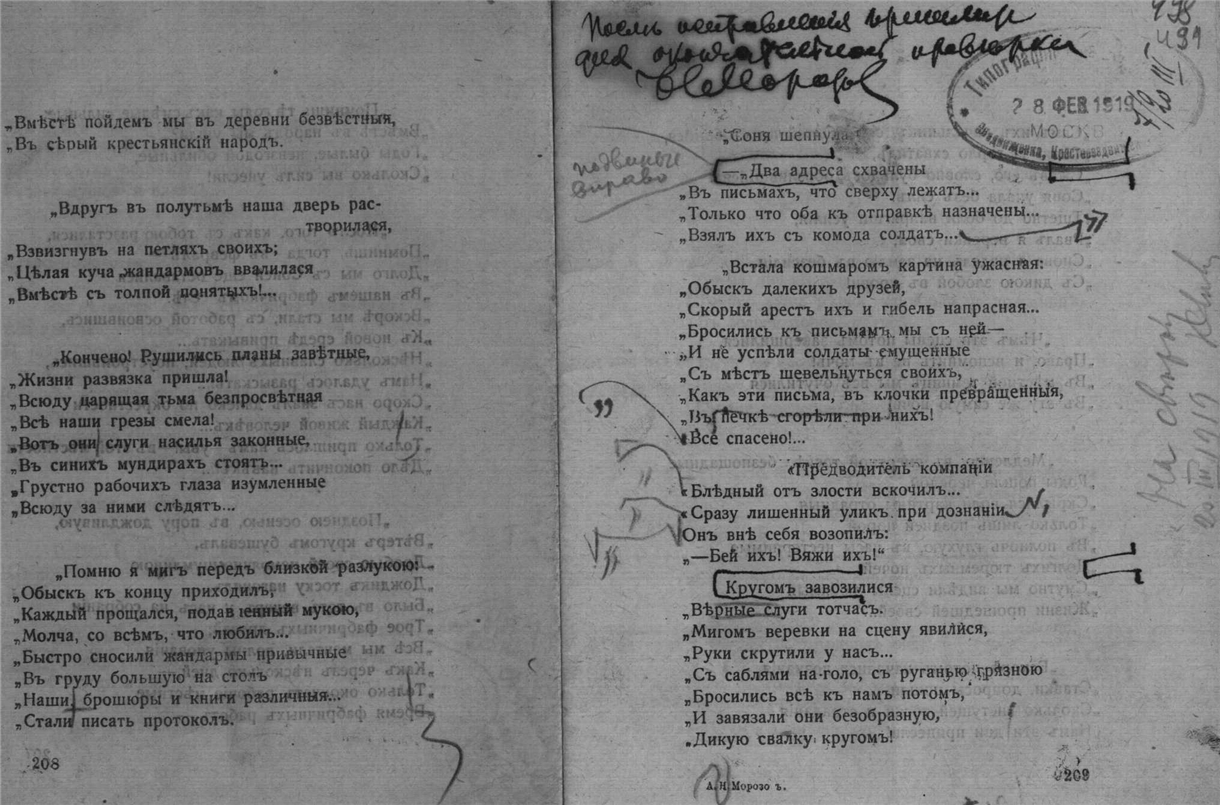 „Вмѣстѣ пойдемъ мы въ деревни безвѣстныя,
„Въ сѣрый крестьянскій народъ.
„Вдругъ въ полутьмѣ наша дверь рас-
творилася,
„Взвизгнувъ на петляхъ своихъ;
„Цѣлая куча жандармовъ ввалилася
„Вмѣстѣ съ толпой понятыхъ!...
„Кончено! Рушились планы завѣтные,
„Жизни развязка пришла!
„Всюду царящая тьма безпросвѣтная
„Всѣ наши грезы смела!
„Вотъ они слуги насилья законные,
„Въ синихъ мундирахъ стоятъ...
„Грустно рабочихъ глаза изумленные
„Всюду за ними слѣдятъ...
„Помню я мигъ передъ близкой разлукою:
„Обыскъ къ концу приходилъ,
„Каждый прощался, подав енный мукою,
„Молча, со всѣмъ, что любилъ...
„Быстро сносили жандармы привычные
„Въ груду большую на столъ
„Наши брошюры и книги различныя...
„Стали писать протоколъ.
208
Послѣ исправленія пришлите
для окончательной провѣрки
Н Морозов
498
491
7/20 III
Типографія
28 ФЕВ 1919
МОСКВА
„Соня шепнула
подвинуть
вправо
—„Два адреса схвачены
„Въ письмахъ, что сверху лежатъ...
„Только что оба къ отправкѣ назначены...
„Взялъ ихъ съ комода солдатъ...
„Встала кошмаромъ картина ужасная:
„Обыскъ далекихъ друзей,
„Скорый арестъ ихъ и гибель напрасная...
„Бросились къ письмамъ мы съ ней—
„И не успѣли солдаты смущенные
„Съ мѣстъ шевельнуться своихъ,
„Какъ эти письма, въ клочки превращенныя,
„Въ печкѣ сгорѣли при нихъ!
„Все спасено!...
„Предводитель компаніи
„Блѣдный отъ злости вскочилъ...
„Сразу лишенный уликъ при дознаніи
Онъ внѣ себя возопилъ:
„—Бей ихъ! Вяжи ихъ!“
Кругомъ завозилися
„Вѣрные слуги тотчасъ.
„Мигомъ веревки на сцену явилйся,
„Руки скрутили у насъ...
„Съ саблями на-голо, съ руганью грязною
„Бросились всѣ къ намъ потомъ,
„И завязали они безобразную,
„Дикую свалку кругомъ!
А. Н. Морозо ъ.
209